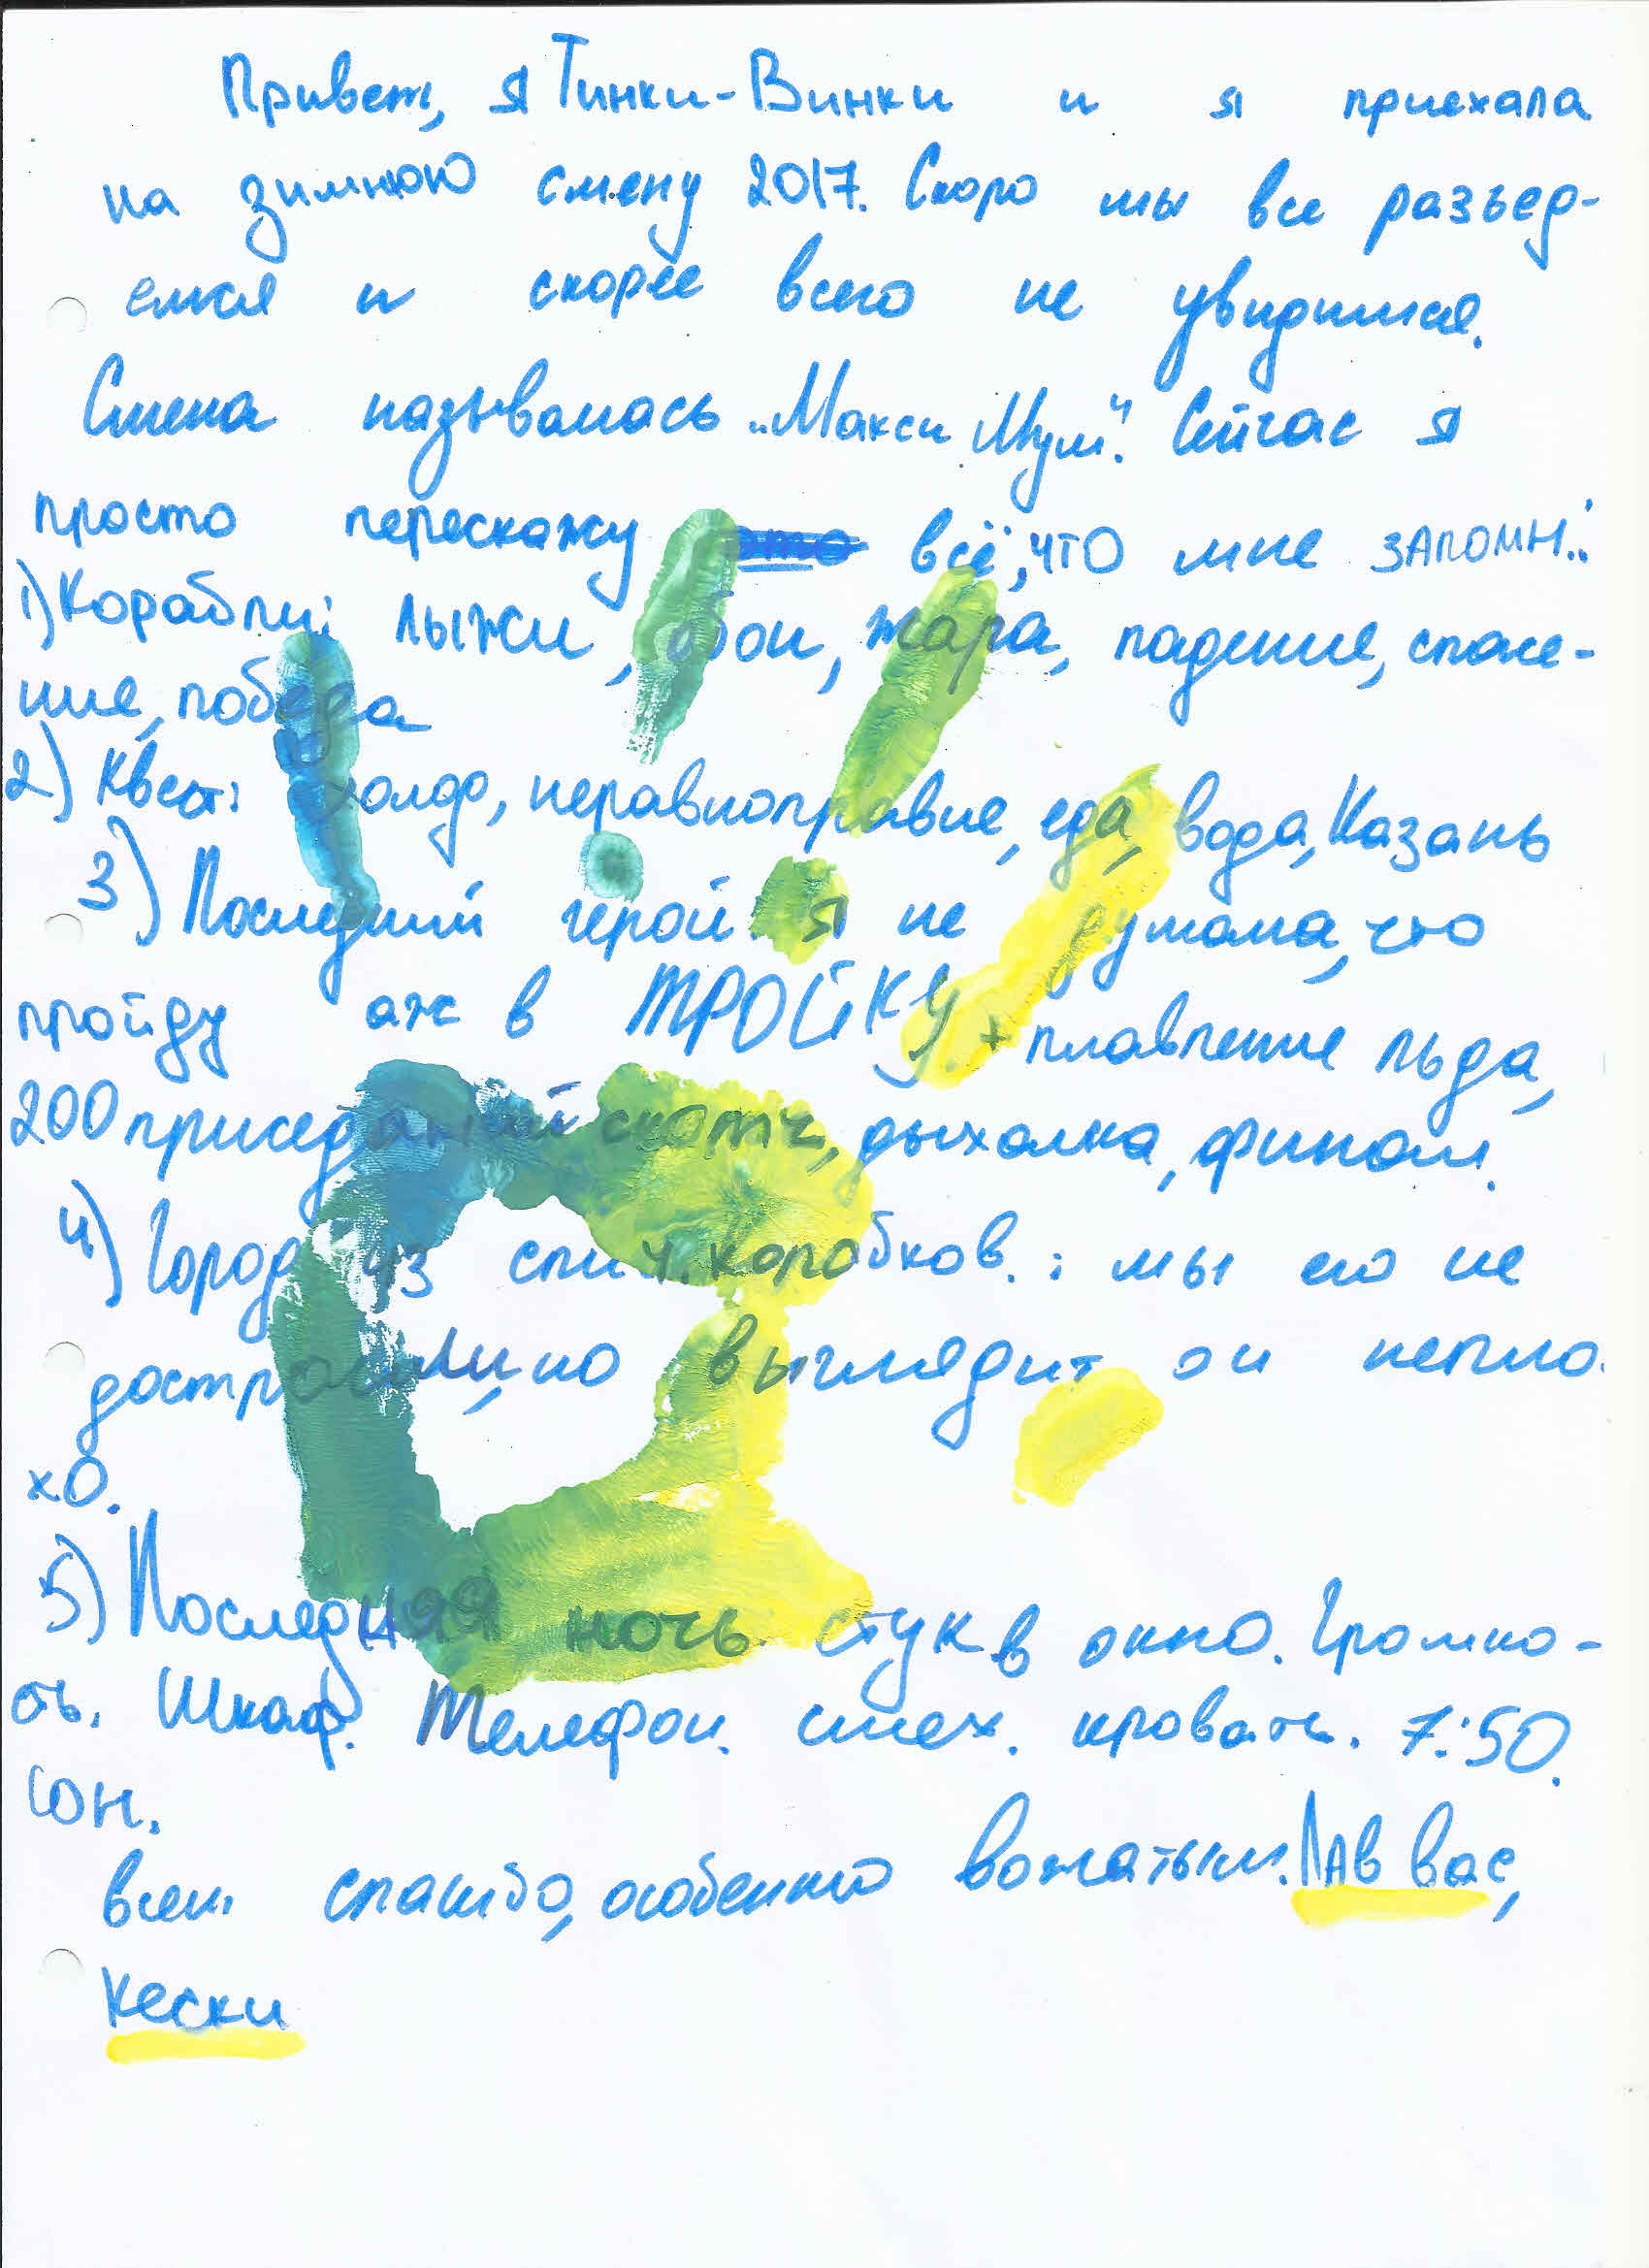 Привет, я Тинки-Винки и я приехала
на зимнюю смену 2017. Скоро мы все разъед-
емся и скорее всего не увидимся.
Смена называлась „Макси Мум". Сейчас я
просто перескажу всё, что мне запомн..:
1) Корабли: лыжи, обои, жара, падение, спасе-
ние, победа
2) Квест: холдо, неравноправие, еда, вода, Казань
3) Последний герой. я не думала, что
пройду аж в ТРОЙКУ + плавление льда,
200 приседаний скотч, дыхалка, финал.
4) Город из спич. коробков. : мы его не
достроили, но выглядит он непло.
хо.
5) Последняя ночь. стук в окно. Громко-
сть. Шкаф. Телефон. смех. кровать. 7:50.
Сон.
всем спасибо, особенно вожатым. Лав вас,
кески